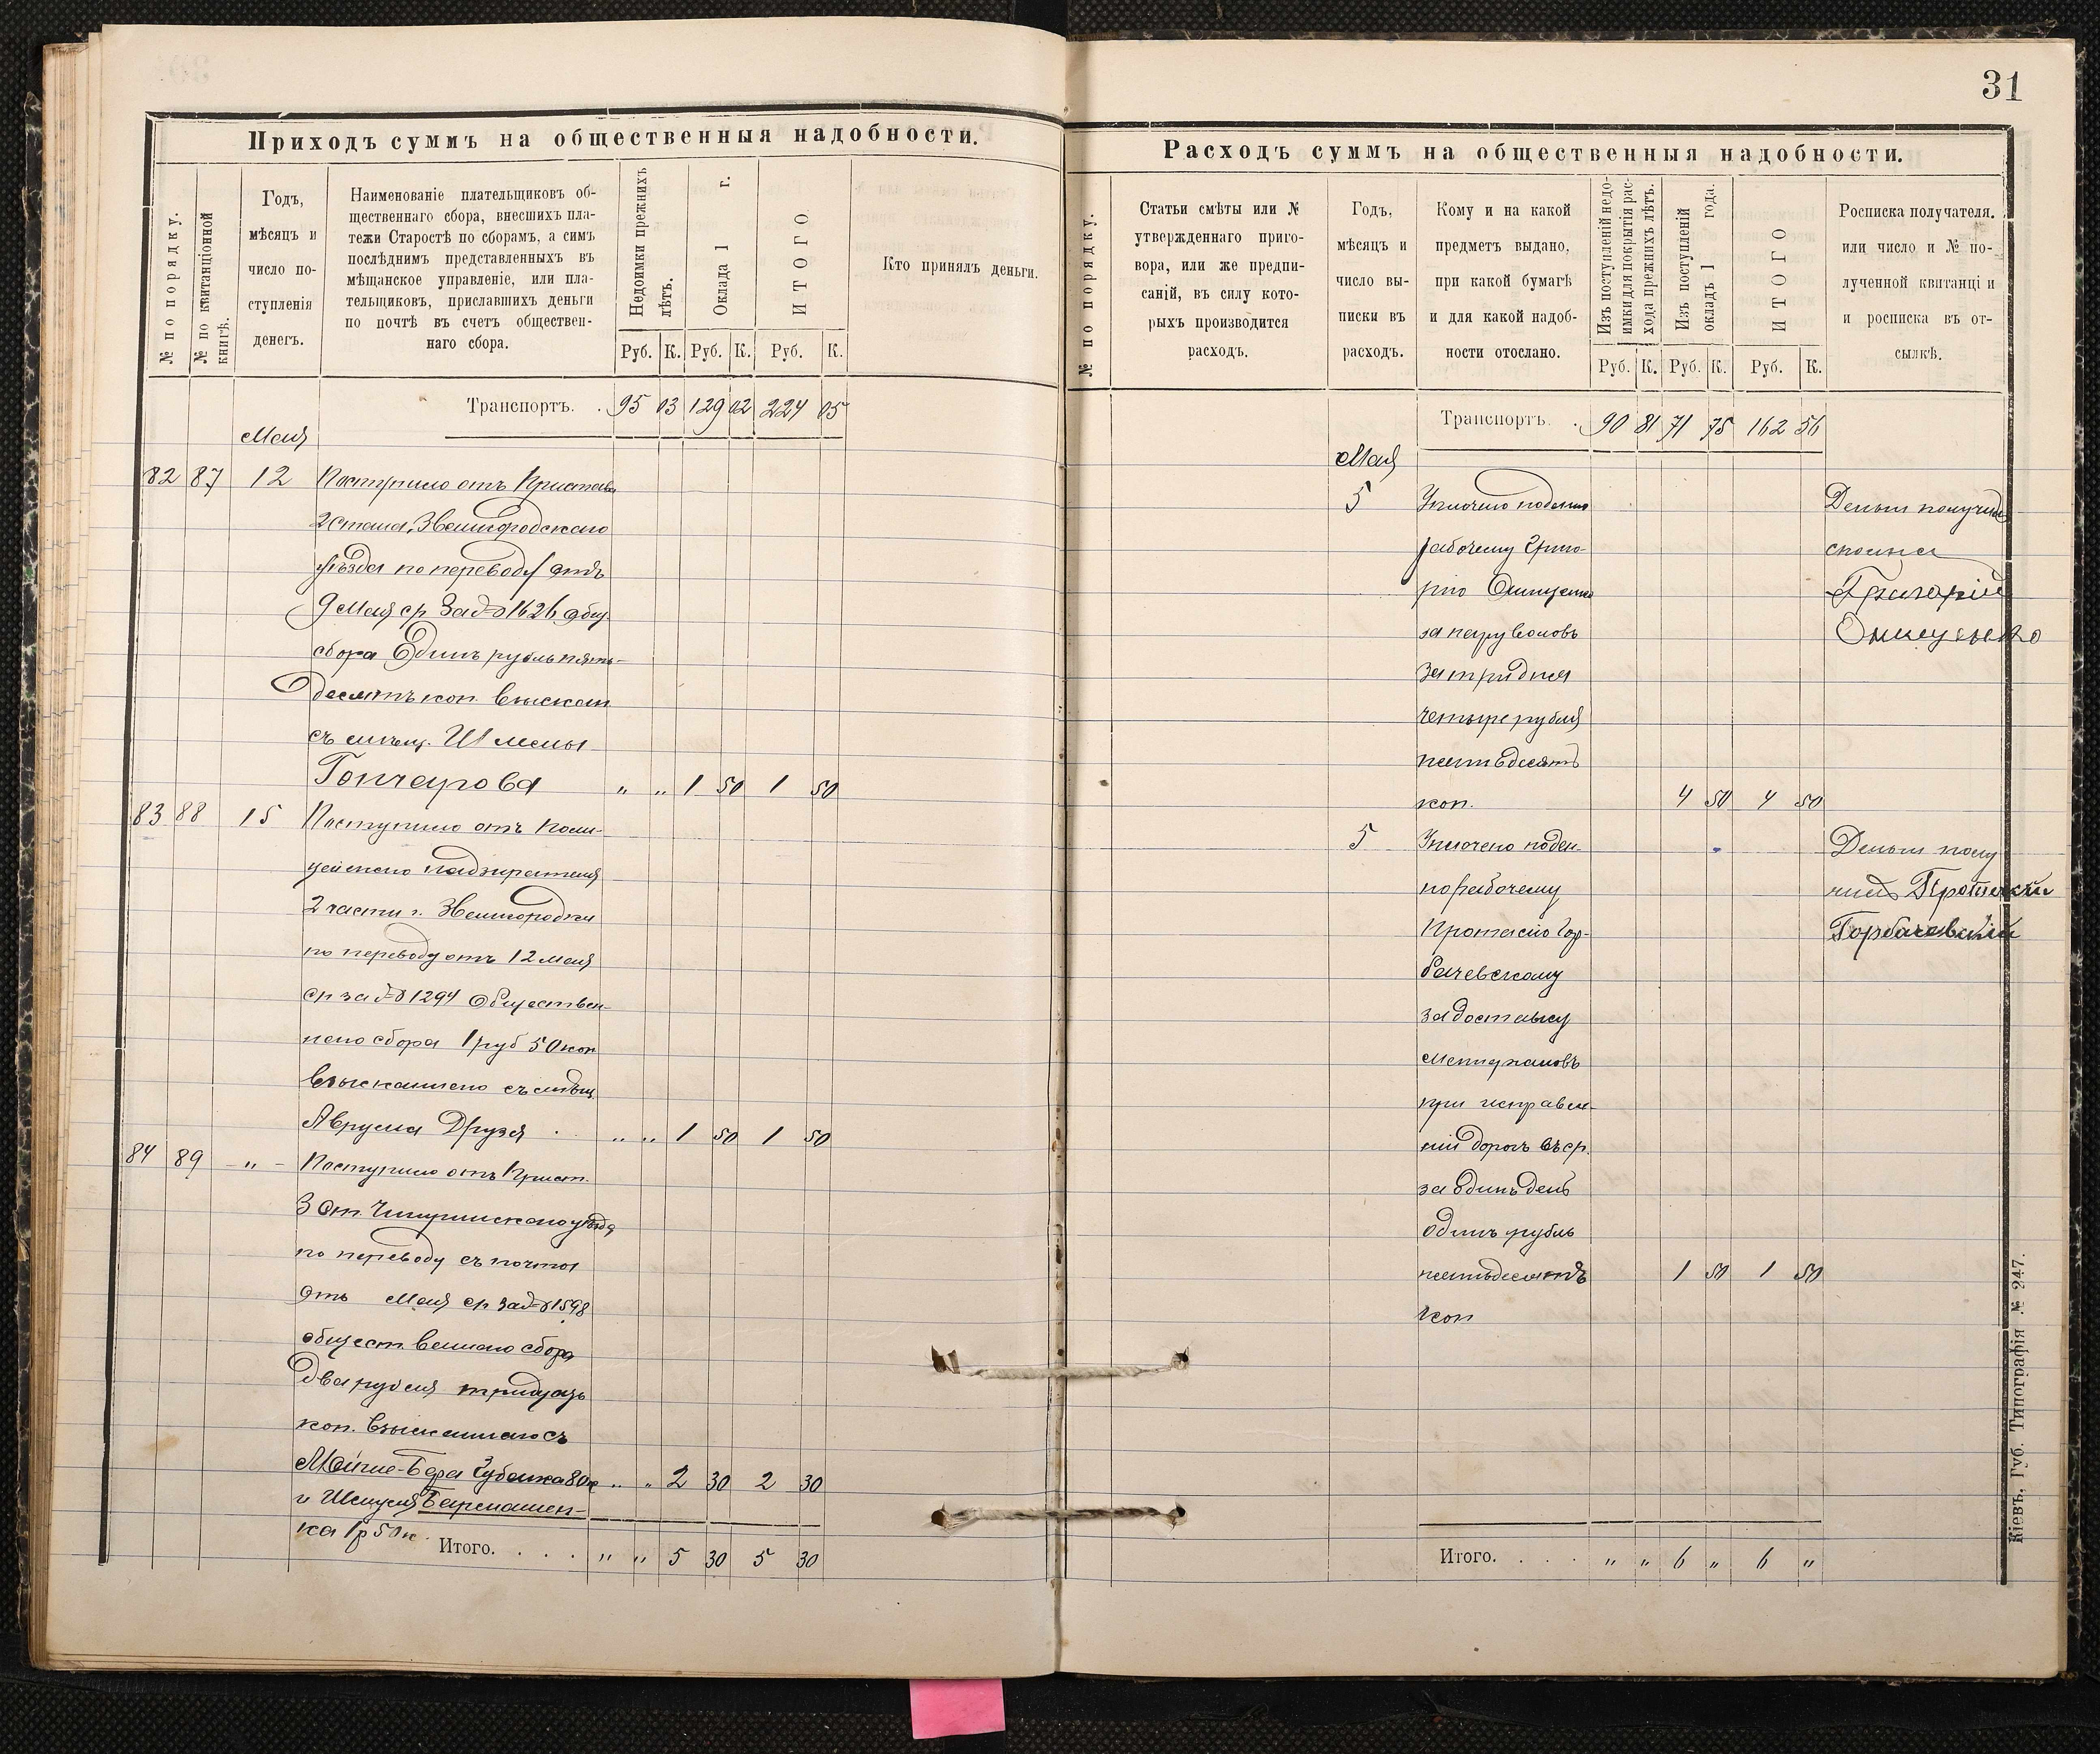 31
Приходъ суммъ на общественныя надобности.
№ по порядку.
№ по квитанціонной книгѣ.
Годъ,
мѣсяцъ и
число по-
ступленія
денегъ.
Наименованіе плательщиковъ об-
щественнаго сбора, внесшихъ пла-
тежи Старостѣ по сборамъ, а симъ
послѣднимъ представленныхъ въ
мѣщанское управленіе, или пла-
тельщиковъ, приславшихъ деньги
по почтѣ въ счетъ обществен-
наго сбора.
Недоимки прежнихъ лѣтъ.
Оклада 1 г.
ИТОГО
Кто принялъ деньги.
Руб. К. Руб. К. Руб. К.
Транспортъ. . 95 03 129 02 224 05
Мая
82 87 12 Поступило отъ Пристава
2 стана, Звенигородскаго
уѣзда по переводу отъ
9 Мая ср за № 1626 общ.
сбора Одинъ рубль пять-
десятъ коп. взыскан
съ мѣщ. Шлемы
Гончарова " " 1 50 1 50
83 88 15 Поступило отъ Поли-
цейскаго надзирателя
2 части г. Звенигородки
по переводу отъ 12 мая
ср за № 1294 Обществен-
наго сбора 1 руб 50 коп
взысканнаго съ мѣщ
Аврума Друзя . " " 1 50 1 50
84 89 - " - Поступило отъ Прист.
3 ст. Чигиринскаго уѣзда
по переводу съ почты
отъ Мая ср за № 1598
обществ веннаго сбора
два рубля тридцать
коп. взысканнаго съ
Мойше-Бера Губанка 80 к " " 2 30 2 30
и Шмуля
ка 1 р 50 к.
Итого. . . . " " 5 30 5 30
Расходъ суммъ на общественныя надобности.
№ по порядку.
Статьи смѣты или №
утвержденнаго приго-
вора, или же предпи-
саній, въ силу кото-
рыхъ производится
расходъ.
Годъ,
мѣсяцъ и
число вы-
писки въ
расходъ.
Кому и на какой
предметъ выдано,
при какой бумагѣ
и для какой надоб-
ности отослано.
Изъ поступленій недо-
имки для покрытія рас-
хода прежнихъ лѣтъ.
Изъ поступленій
окладъ 1 года.
ИТОГО
Росписка получателя.
или число и № по-
лученной квитанці и
и росписка въ от-
сылкѣ.
Руб. К. Руб. К. Руб. К.
Транспортъ. . 90 81 71 75 162 56
Мая
5 Уплочено поденно Деньги получилъ
рабочему Григо- сполна
рію Онищенко Григорій
за пару воловъ Онищенко
за три дня
четыре рубля
пятьдесятъ
коп. 4 50 4 50
5 Уплочено поден- Деньги полу
но рабочему чилъ
Протасію Гор- Горбачевскій
бачевскому
за доставку
матеріаловъ
при исправле-
ніи дорогъ въ ср.
за одинъ день
одинъ рубль
пятьдесятъ 1 50 1 50
коп
Итого. . . . " " 6 " 6 "
Кіевъ, Губ. Типографія № 247.